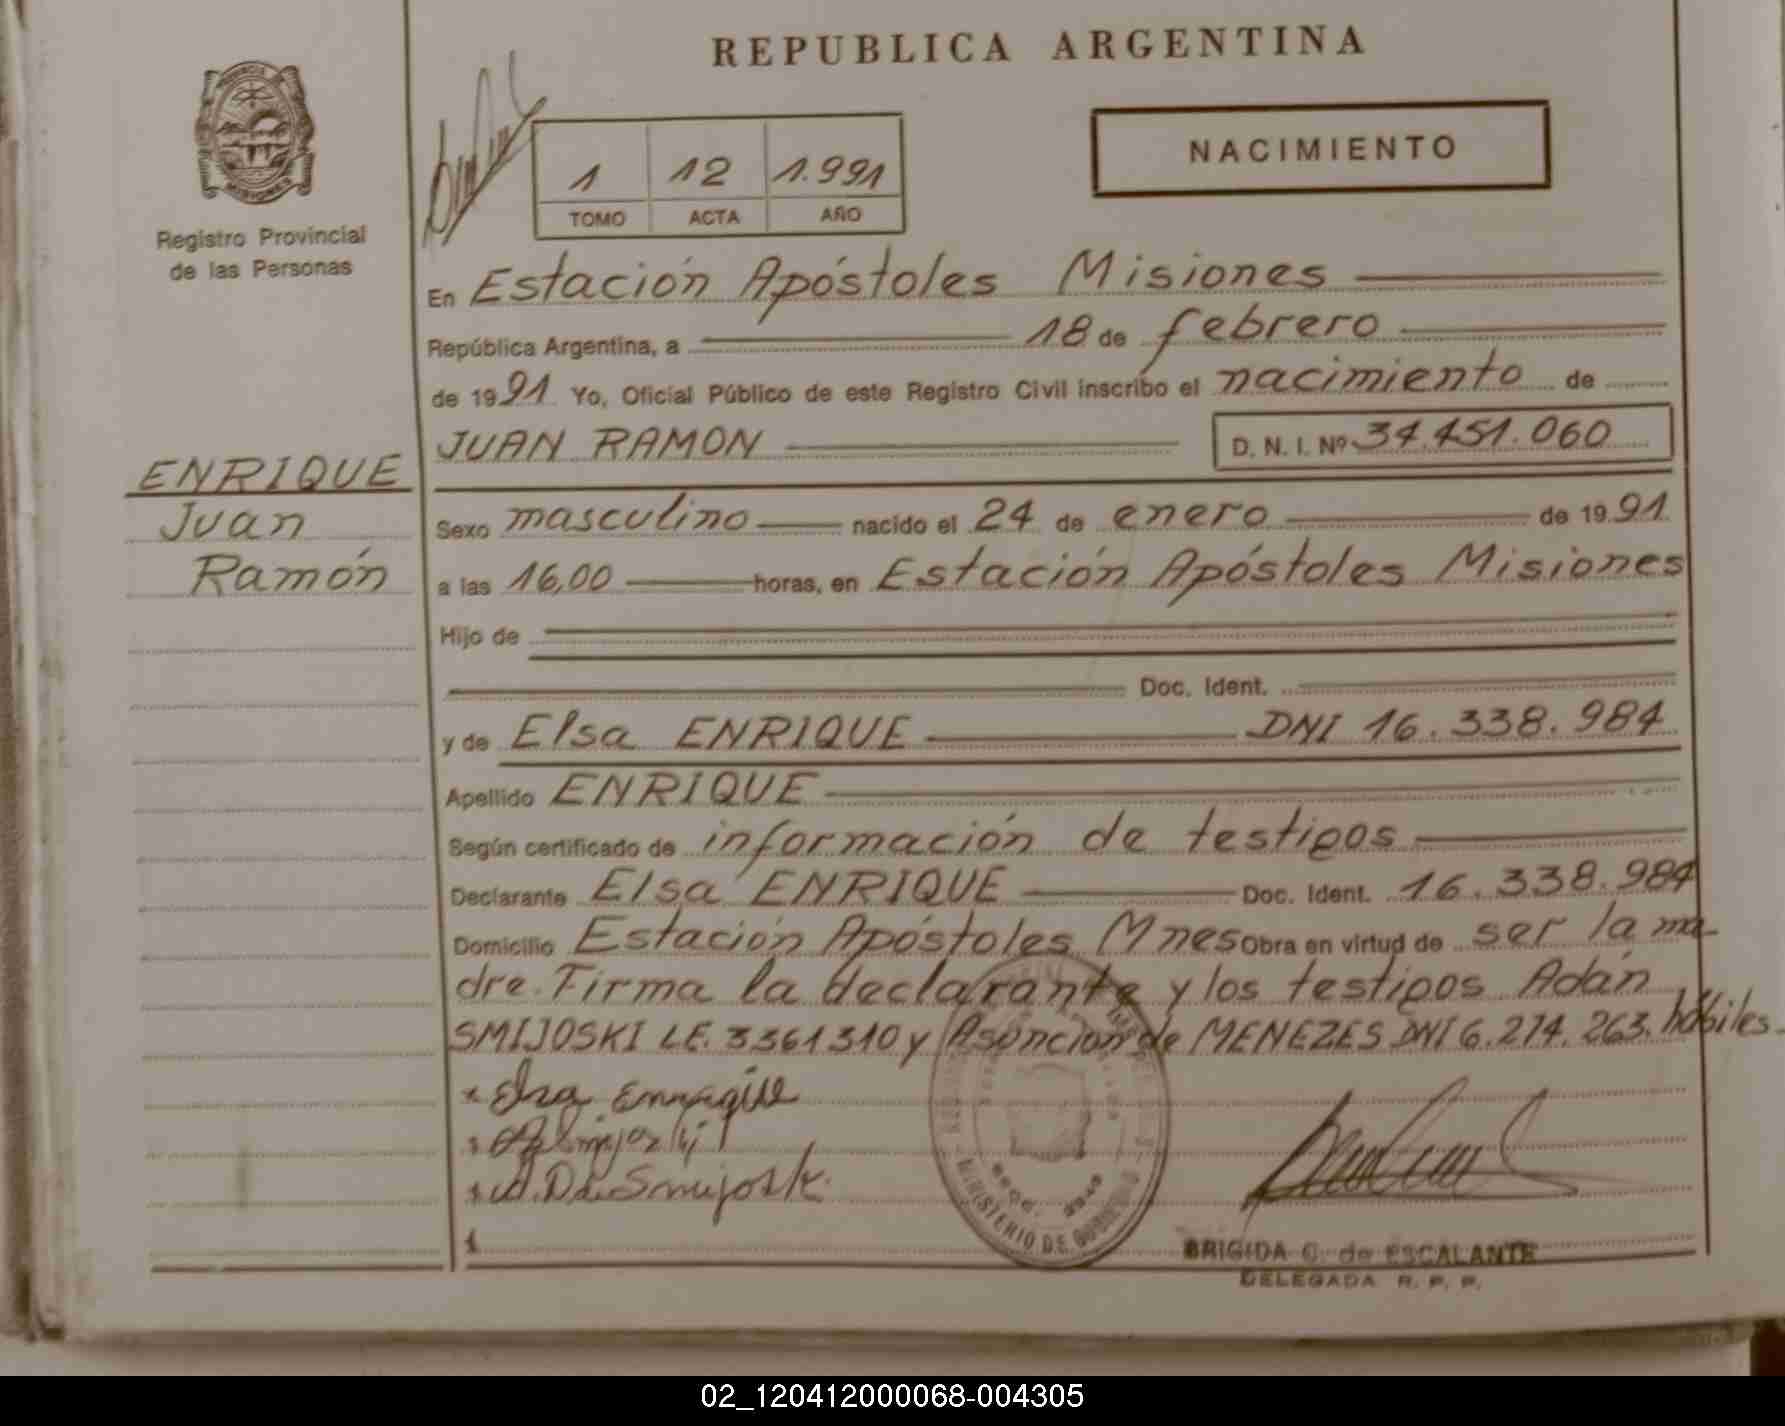 REPUBLICA ARGENTINA
PROVINCIA
MISIONES
Registro Provincial
de las Personas
1 12 1.991
TOMO ACTA AÑO
NACIMIENTO
En Estación Apóstoles Misiones
República Argentina, a 18 de febrero
de 1991 Yo, Oficial Público de este Registro Civil inscribo el nacimiento de
JUAN RAMON D. N. I. Nº 34.451.060
ENRIQUE
Juan
Ramón
Sexo masculino nacido el 24 de enero de 1991
a las 16,00 horas, en Estación Apóstoles Misiones
Hijo de
Doc. Ident.
y de Elsa ENRIQUE DNI 16.338.984
Apellido ENRIQUE
Según certificado de información de testigos
Declarante Elsa ENRIQUE Doc. Ident. 16.338.984
Domicilio Estación Apóstoles Mnes Obra en virtud de ser la ma-
dre. Firma la declarante y los testigos Adán
SMIJOSKI LE. 3361310 y Asunción de MENEZES DNI 6.274.263. hábiles.
MINISTERIO DE GOBIERNO
BRIGIDA C. de ESCALANTE
DELEGADA R. P. P.
02_120412000068-004305